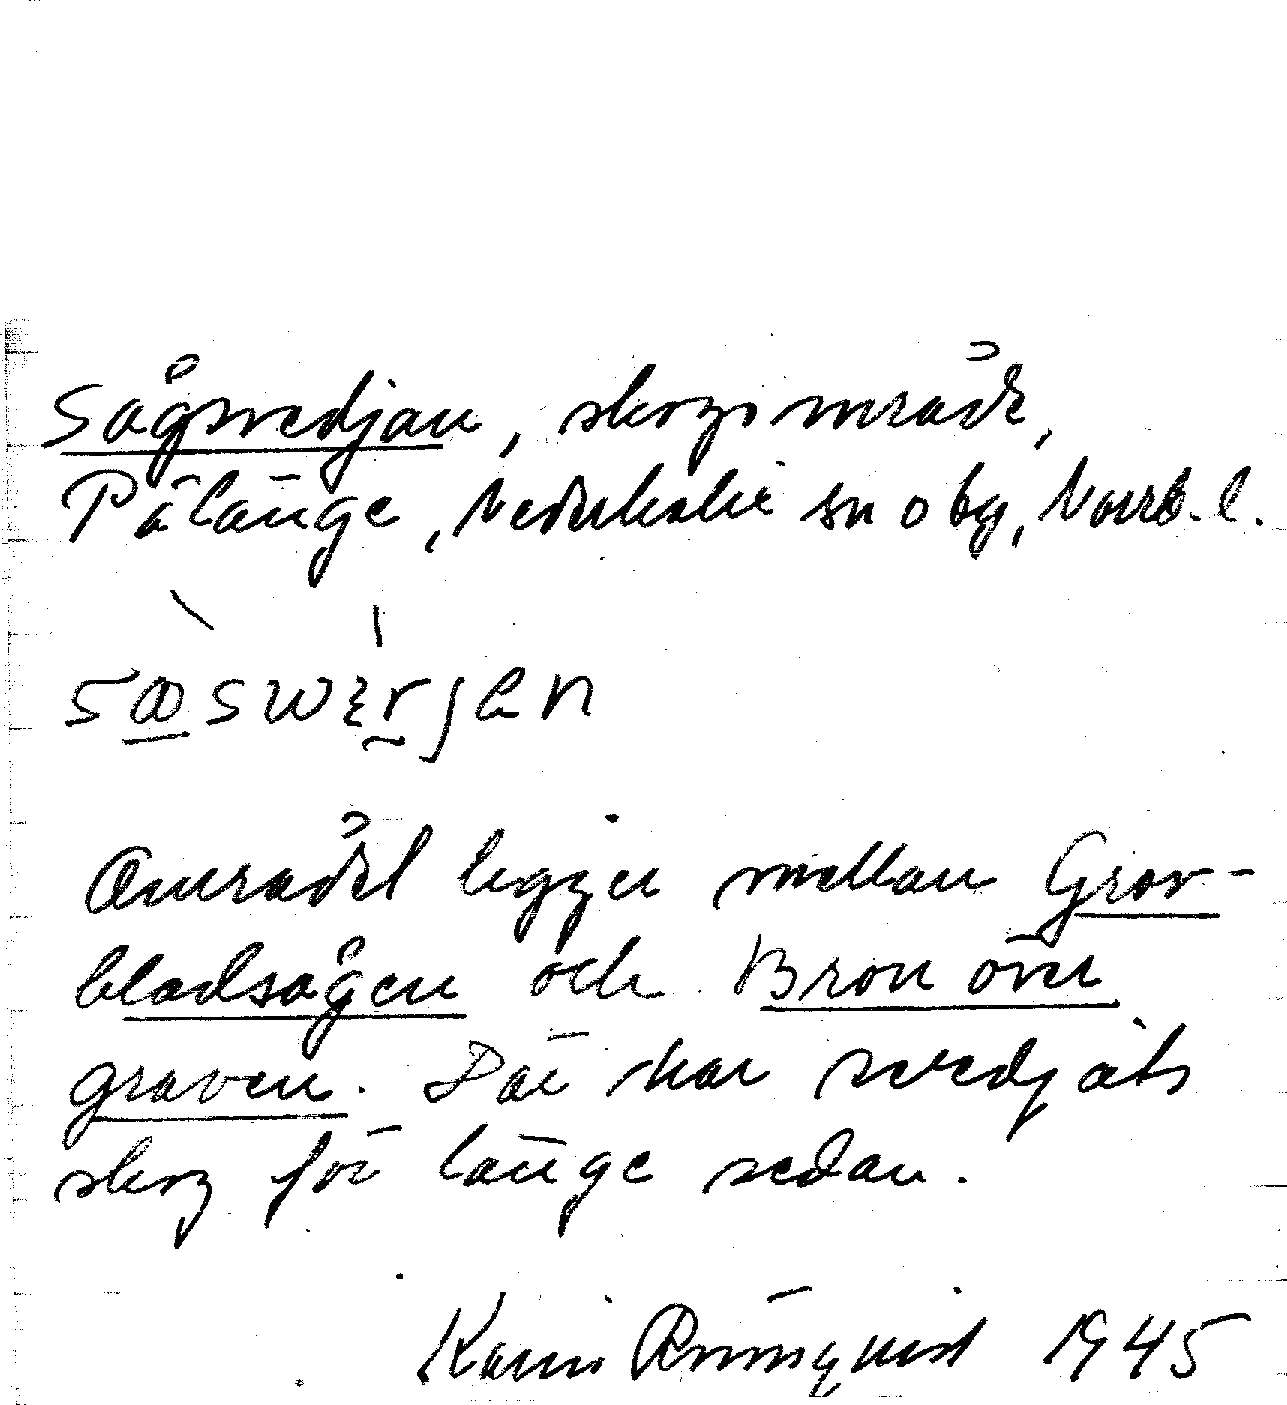 Sågsvedjan, skogsområde,
Pålänge, Nederkalix sn o bg, Norrb. l.
Området ligger mellan Grov-
bladsågen och Bron över
graven. Där har svedjats
skog för länge sedan.
Karin Rönnquist 1945